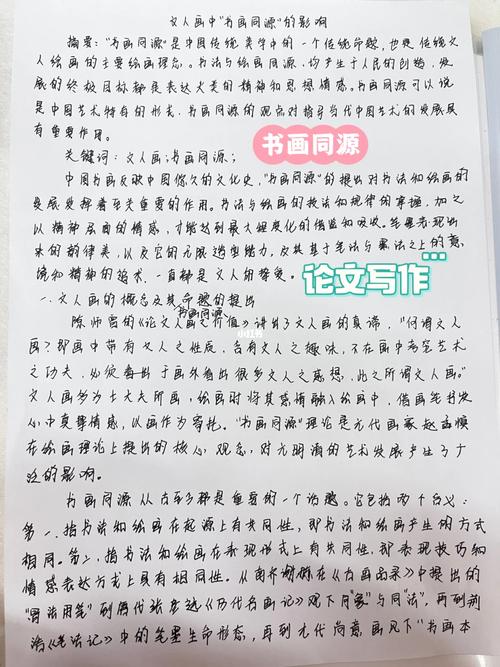 文人画中"书画同源"的影响
摘要："书画同源"是中国传统美学中的一个传统命题，也是传统文
人绘画的主要绘画理念。书法与绘画同源，均产生于人民的创造，发
展的终极目标都是表达大美的精神和思想情感。书画同源可以说
是中国艺术特有的形式，书画同源的观点对指导当代中国艺术的发展具
有重要作用。
书画同源
关键词：文人画；书画同源；
中国书画反映中国悠久的文化史，"书画同源"的提出对书法和绘画的
发展发挥着至关重要的作用。书法与绘画的技法和规律的掌握，加之
以精神层面的情感，才能达到最大程度化的借鉴和吸收。笔墨表现出
来的韵律美，以及它的无限造型能力，及其基于笔法与墨法之上的意
境和精神的追求，一直都是文人的挚爱。
论文写作
一、文人画的概念及其书画同源命题的提出
小红书
陈师曾的《论文人画之价值》讲出了文人画的真谛，"何谓文人
画？即画中带有文人之性质，含有文人之趣味，不在画中考究艺术
之功夫，必须于画外看出很多文人之感想，此之所谓文人画。"
文人画多为士大夫所画，绘画时将其感情融入绘画中，借画笔抒发
心中真挚情感，以画作为寄托。"书画同源"理论是元代画家赵孟頫
在绘画理论上提出的核心观念，对元明清的艺术发展产生了广
泛的影响。
书画同源从古至今都是重要的一个话题。它包括两个含义：
第一，指书法和绘画在起源上有共同性，即书法和绘画产生的方式
相同。第二，指书法和绘画在表现形式上有共同性，即表现技巧和
情感表达方式上具有相同性。从南齐谢赫在《古画品录》中提出的
"骨法用笔"到唐代张彦远《历代名画记》观下的"象"与"同法"，再到荆
浩《笔法记》中的笔墨生命形态，再到元代尚意画风下"书画本